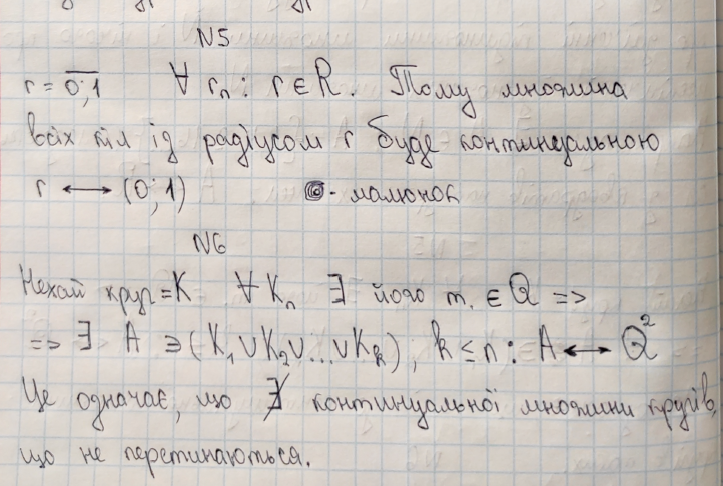 N5
r = 0;1 ∀ rₙ : r ∈ R. Тому множина
всіх кіл ід радіусом r буде континуальною
r ⟷ (0; 1) - малюнок
N6
Нехай круг = K ∀ Kₙ ∃ його т. ∈ Q =>
=> ∃ A ∋ (K₁ ∪ K₂ ∪ ... ∪ Kₖ) ; k ≤ n : A ⟷ Q²
Це означає, що ∄ континуальної множини кругів,
що не перетинаються.